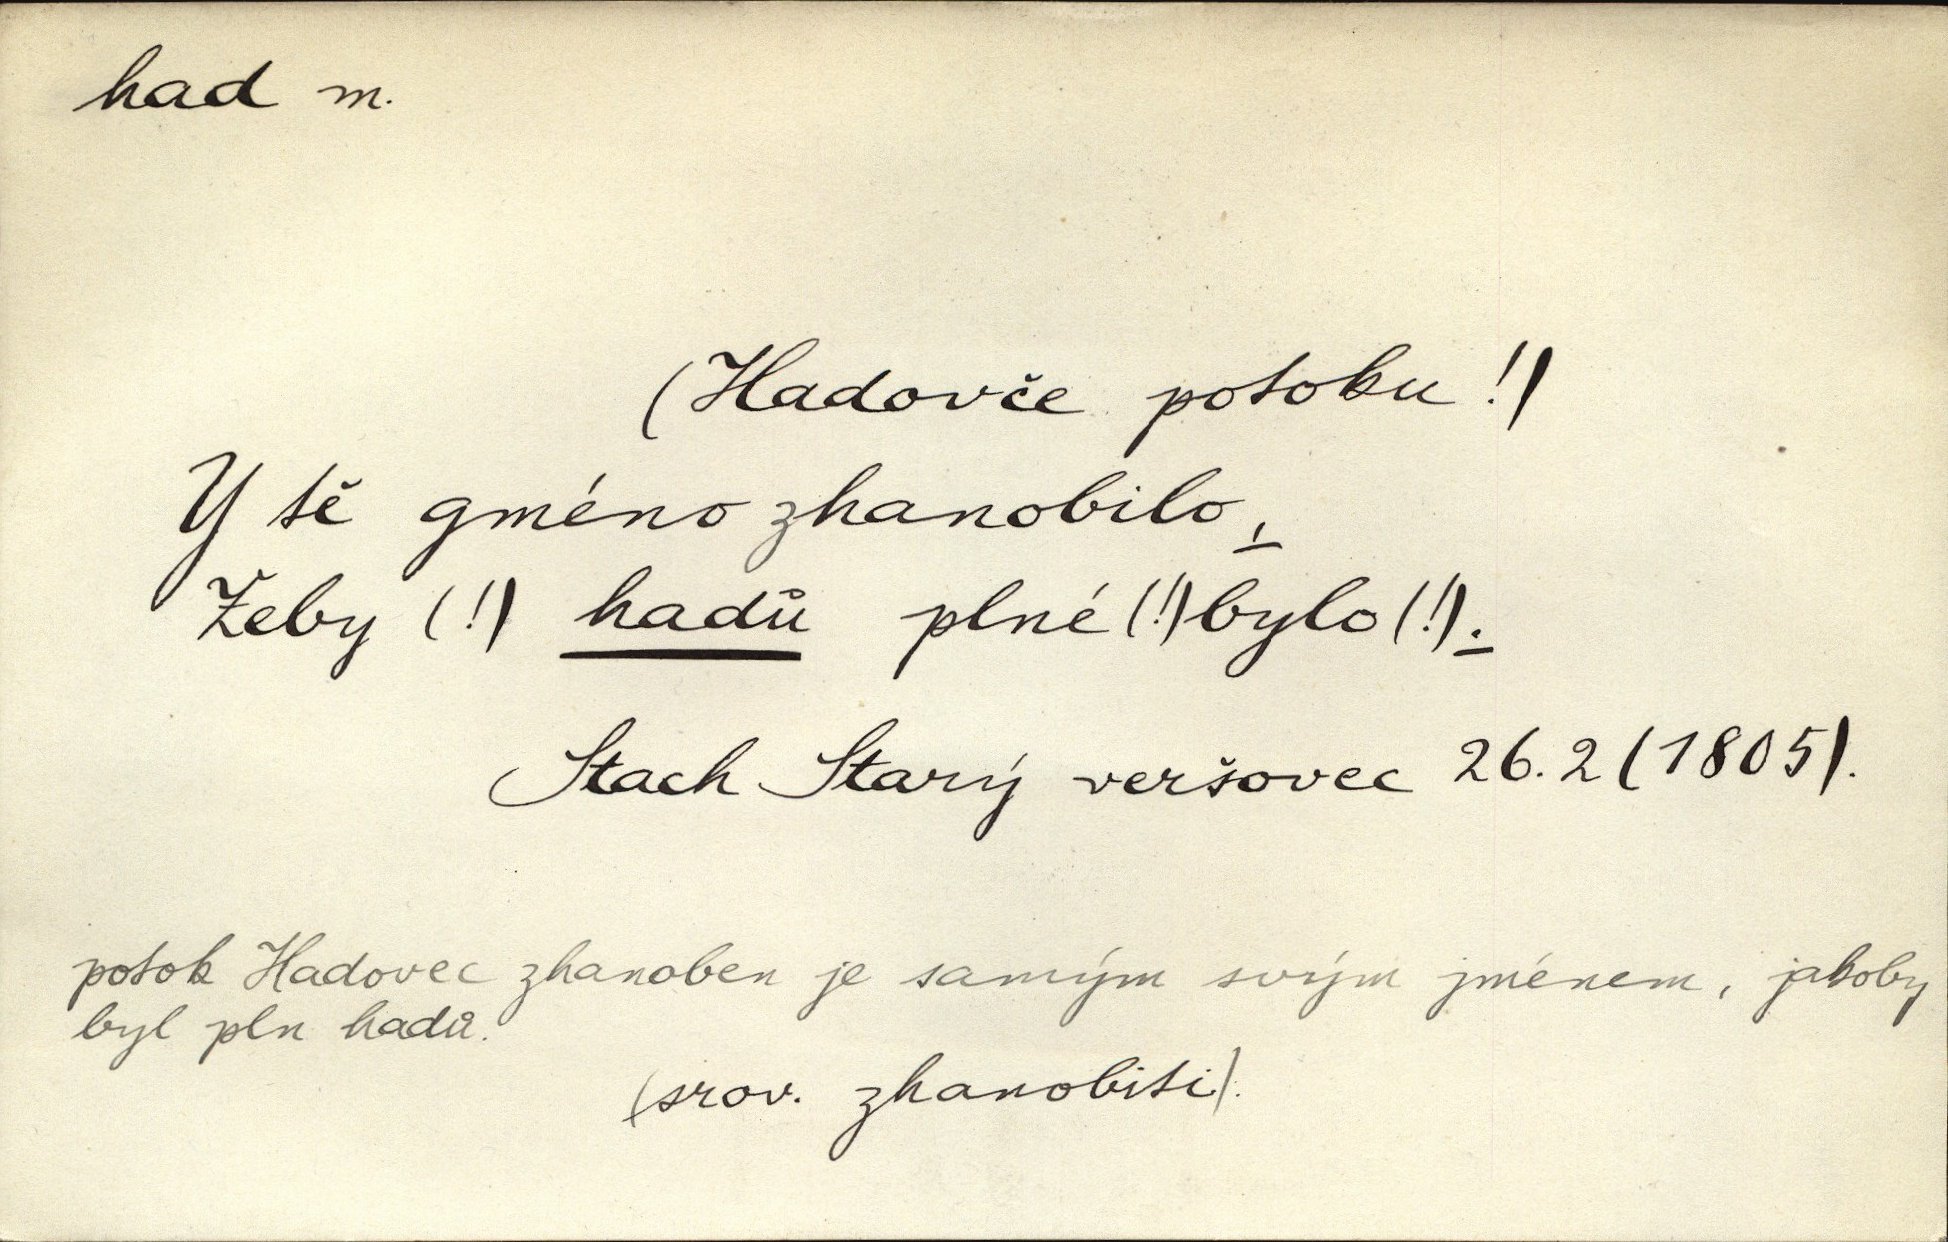 had m.
(Hadovče potoku!)
Y tě gméno zhanobilo,
Žeby (!) hadů plné (!) bylo (!).
Stach Starý veršovec 26.2 (1805).
potok Hadovec zhanoben je samým svým jménem, jakoby
byl pln hadů.
(srov. zhanobiti).